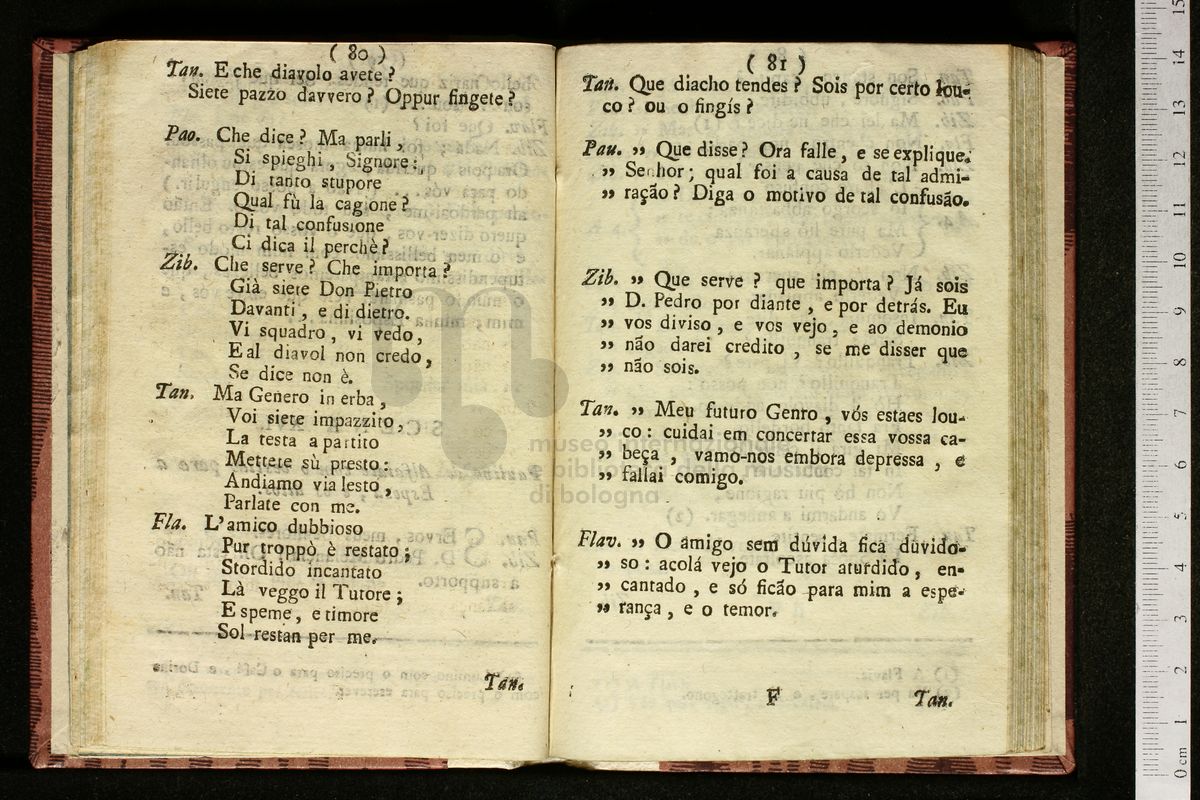 ( 80 )
Tan. E che diavolo avete ?
Siete pazzo davvero ? Oppur fingete ?
Pao. Che dice ? Ma parli ,
Si spieghi , Signore :
Di tanto stupore
Qual fù la cagione ?
Di tal confusione
Ci dica il perchè ?
Zib. Che serve ? Che importa ?
Già siete Don Pietro
Davanti , e di dietro.
Vi squadro , vi vedo ,
E al diavol non credo ,
Se dice non è.
Tan. Ma Genero in erba ,
Voi siete impazzito ,
La testa a partito
Mettete sù presto :
Andiamo via lesto ,
Parlate con me.
Fla. L'amico dubbioso
Pur troppò è restato ;
Stordido incantato
Là veggo il Tutore ;
E speme , e timore
Sol restan per me.
Tan.
( 81 )
Tan. Que diacho tendes ? Sois por certo lou-
co ? ou o fingís ?
Pau. ,, Que disse ? Ora falle , e se explique.
,, Senhor ; qual foi a causa de tal admi-
,, ração ? Diga o motivo de tal confusão.
Zib. ,, Que serve ? que importa ? Já sois
,, D. Pedro por diante , e por detrás. Eu
,, vos diviso , e vos vejo , e ao demonio
,, não darei credito , se me disser que
,, não sois.
Tan. ,, Meu futuro Genro , vós estaes lou-
,, co : cuidai em concertar essa vossa ca-
,, beça , vamo-nos embora depressa , e
,, fallai comigo.
Flav. ,, O amigo sem dúvida fica duvido-
,, so : acolá vejo o Tutor aturdido , en-
,, cantado , e só ficão para mim a espe-
,, rança , e o temor.
F Tan.
museo internazionale
e biblioteca della musica
di bologna
0 cm 1 2 3 4 5 6 7 8 9 10 11 12 13 14 15